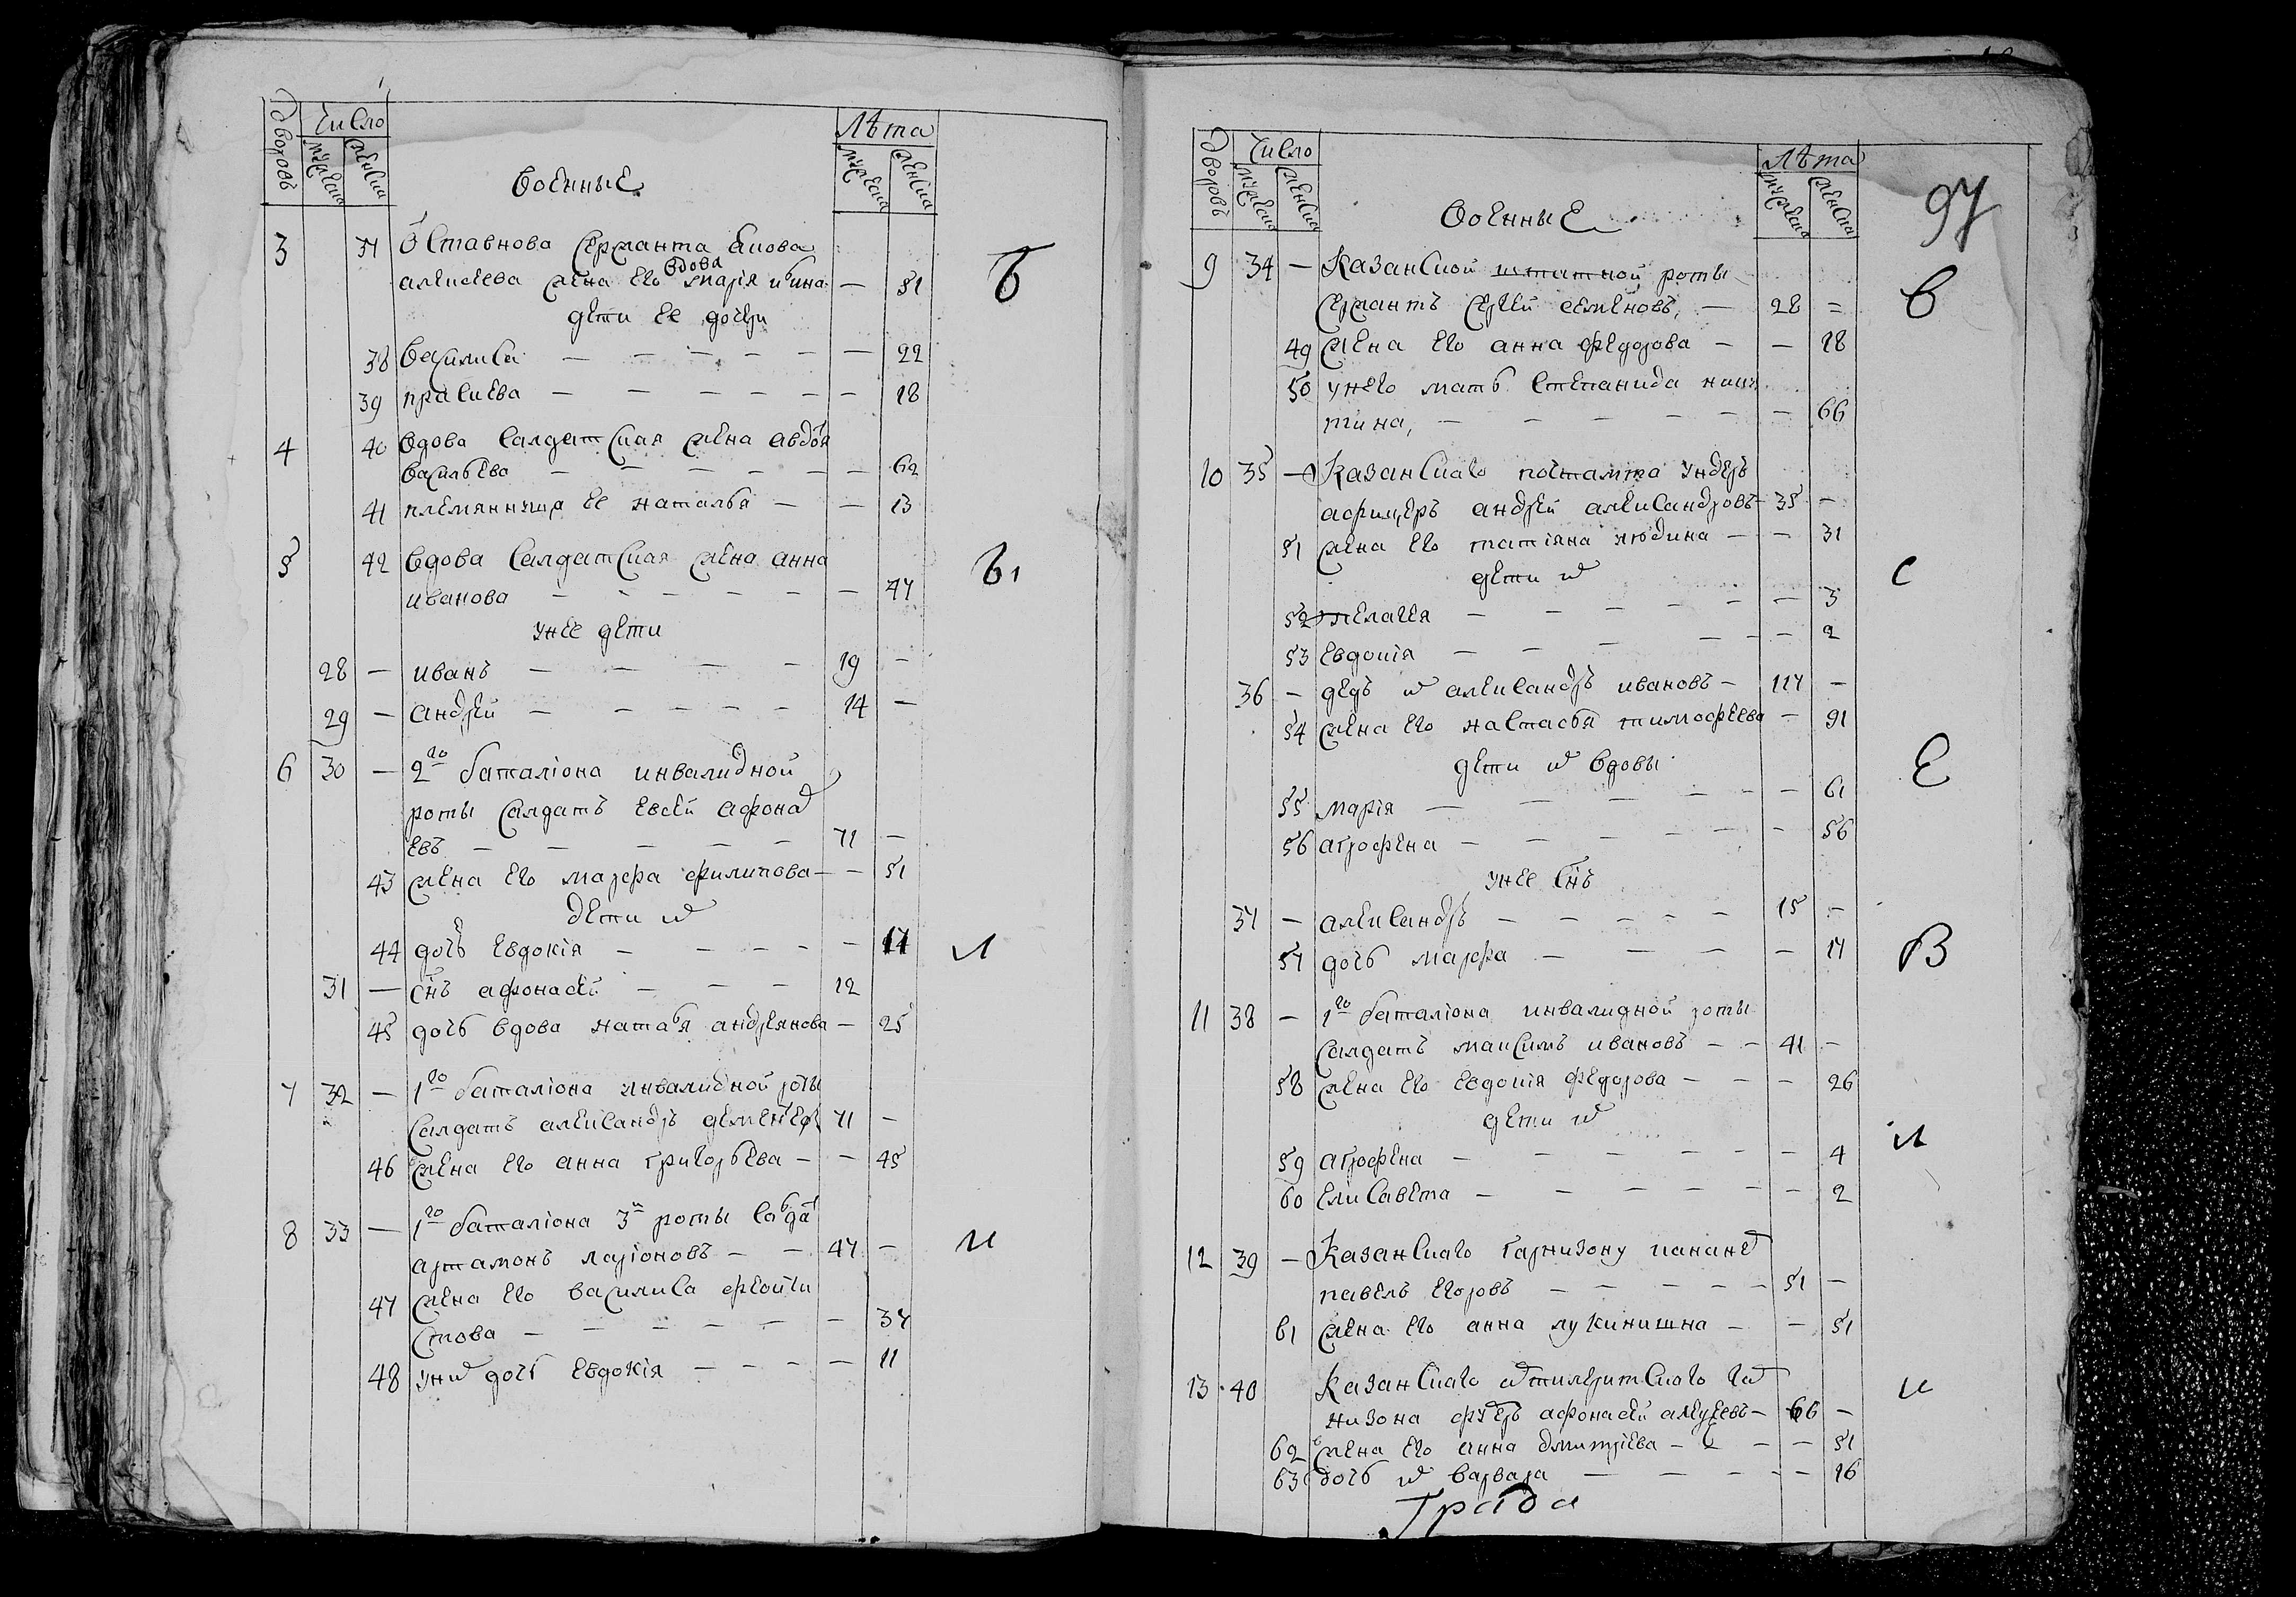 дворовъ число мужеска женска
военные
лѣта мужеска женска
3 37 Отставнова сержанта якова
алексеева жена его вдова марія — 51
дети ее дочери
38 василиса — 22
39 прасковя — 18
4 40 вдова салдатская жена авдотя
васильева — 62
41 племянница ее наталья — 13
5 42 вдова салдатская жена анна
иванова — 47
унее дети
28 — иванъ — 19 —
29 — андрей — 14 —
6 30 — 2го баталіона инвалидной
роты салдатъ евсей афонас
евъ — 71 —
43 жена его марфа филипова — 51
дети их
44 дочь евдокія — 17
31 — снъ афонасей — 12
45 дочь вдова наталья андреянова — 25
7 32 — 1го баталіона инвалидной роты
салдатъ александръ дементев 71 —
46 жена его анна григорьева — 45
8 33 — 1го баталіона 3й роты салдат
артамонъ ларіоновъ — 47 —
47 жена его василиса феокти
стова — 37
48 уних дочь евдокія — 11
Б
В
Л
И
дворовъ число мужеска женска
военные
лѣта мужеска женска
97
9 34 — Казанской штатной роты
сержантъ сергей семеновъ, — 28 =
49 жена его анна федорова — 28
50 унего мать степанида ники
тина, — 66
10 35 — Казанскаго почтамта ундеръ
афицеръ андрей александровъ 35 —
51 жена его татіяна — 31
дети их
52 пелагея — 3
53 евдокія — 2
36 — дедъ их александръ ивановъ — 117 —
54 жена его настасья тимофеева — 91
дети их вдовы
55 марія — 61
56 агрофена — 56
унее снъ
37 — александръ — 15 —
57 дочь марфа — 17
11 38 — 1го баталіона инвалидной роты
салдатъ максимъ ивановъ — 41 —
58 жена его евдокія федорова — 26
дети их
59 агрофена — 4
60 елисавета — 2
12 39 — Казанскаго гарнизону
павелъ егоровъ — 51 —
61 жена его анна лукинишна — 51
13 40 Казанскаго гар
низона афонасей — 66 —
62 жена его анна дмитріева — 51
63 дочь их варвара — 16
Града
В
С
Е
В
И
И